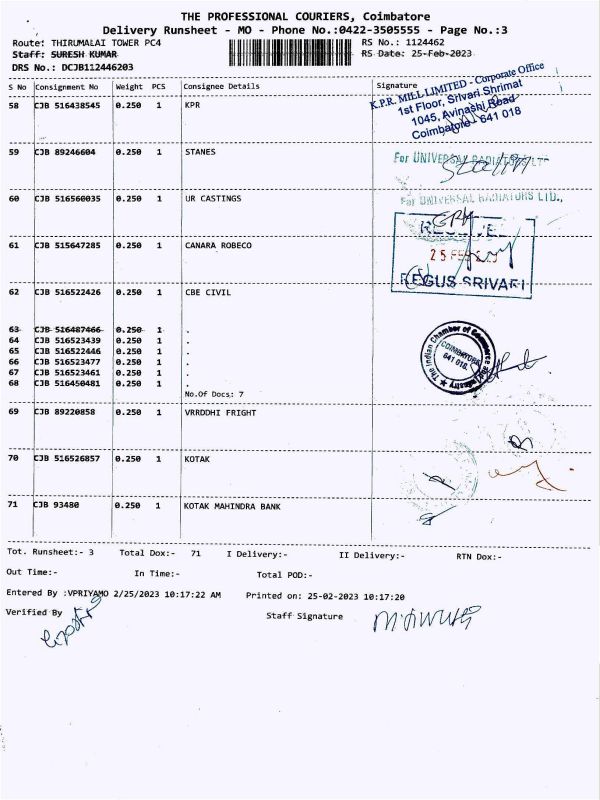 THE PROFESSIONAL COURIERS, Coimbatore
Delivery Runsheet - MO - Phone No.:0422-3505555 - Page No.:3
Route: THIRUMALAI TOWER PC4 RS No.: 1124462
Staff: SURESH KUMAR RS Date: 25-Feb-2023
DRS No.: DCJB112446203
S No Consignment No Weight PCS Consignee Details Signature
58 CJB 516438545 0.250 1 KPR
K.P.R. MILL LIMITED - Corporate Office
1st Floor, Srivari Shrimat
1045, Avinashi Road
Coimbatore 641 018
59 CJB 89246604 0.250 1 STANES
For UNIVERSAL RADIATORS LTD
60 CJB 516560035 0.250 1 UR CASTINGS
For UNIVERSAL RADIATORS LTD.,
61 CJB 515647285 0.250 1 CANARA ROBECO
25 FEB
REGUS SRIVARI
62 CJB 516522426 0.250 1 CBE CIVIL
63 CJB 516487466 0.250 1 .
64 CJB 516523439 0.250 1 .
65 CJB 516522446 0.250 1 .
66 CJB 516523477 0.250 1 .
67 CJB 516523461 0.250 1 .
68 CJB 516450481 0.250 1 .
The Indian Chamber of Commerce and Industry
COIMBATORE
641 018.
No.Of Docs: 7
69 CJB 89220858 0.250 1 VRRDDHI FRIGHT
70 CJB 516526857 0.250 1 KOTAK
71 CJB 93480 0.250 1 KOTAK MAHINDRA BANK
Tot. Runsheet:- 3 Total Dox:- 71 I Delivery:- II Delivery:- RTN Dox:-
Out Time:- In Time:- Total POD:-
Entered By :VPRIYAMO 2/25/2023 10:17:22 AM Printed on: 25-02-2023 10:17:20
Verified By Staff Signature